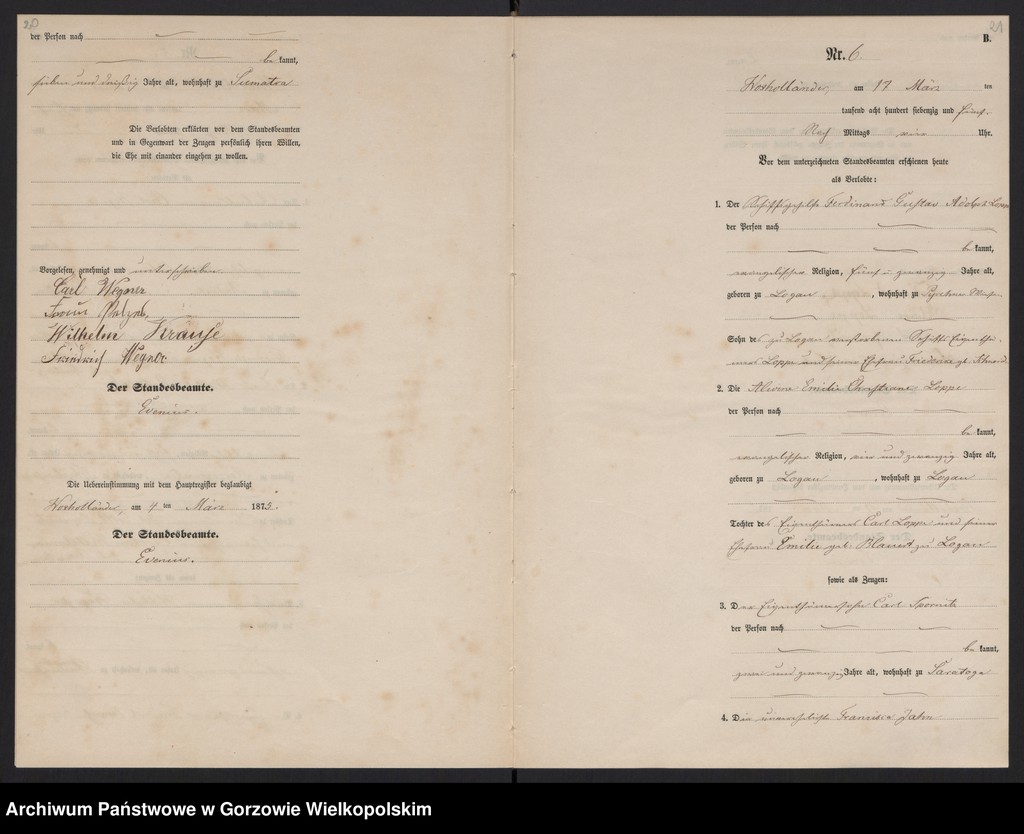 20
der Person nach
be kannt,
sieben und dreißig Jahre alt, wohnhaft zu Sumatra
Die Verlobten erklärten vor dem Standesbeamten
und in Gegenwart der Zeugen persönlich ihren Willen,
die Ehe mit einander eingehen zu wollen.
Vorgelesen, genehmigt und unterschrieben
Carl Wegner
Wilhelm Krause
Friedrich Wegner
Der Standesbeamte.
Evenius.
Die Uebereinstimmung mit dem Hauptregister beglaubigt
Woxholländer, am 4 ten März 1875.
Der Standesbeamte.
Evenius.
21
B.
Nr. 6.
Woxholländer, am 17 März ten
tausend acht hundert siebenzig und fünf.
Nach Mittags Uhr.
Vor dem unterzeichneten Standesbeamten erschienen heute
als Verlobte:
1. Der Schiffsgehilfe Ferdinand Gustav Adolph Loppe
der Person nach
be kannt,
evangelischer Religion, fünf u zwanzig Jahre alt,
geboren zu Logan, wohnhaft zu
Sohn des zu Logan verstorbenen Schiffs Eigenthü-
mers Loppe und seiner Ehefrau Friederike gb.
2. Die Alwine Emilie Christiane Loppe
der Person nach
be kannt,
evangelischer Religion, ein und zwanzig Jahre alt,
geboren zu Logan, wohnhaft zu Logan
Tochter des Eigenthümers Carl Loppe und seiner
Ehefrau Emilie geb. zu Logan
sowie als Zeugen:
3. Der Eigenthümersohn Carl
der Person nach
be kannt,
zwei und zwanzig Jahre alt, wohnhaft zu Saratoga
4. Die unverehelichte Franziska Jahn
Archiwum Państwowe w Gorzowie Wielkopolskim